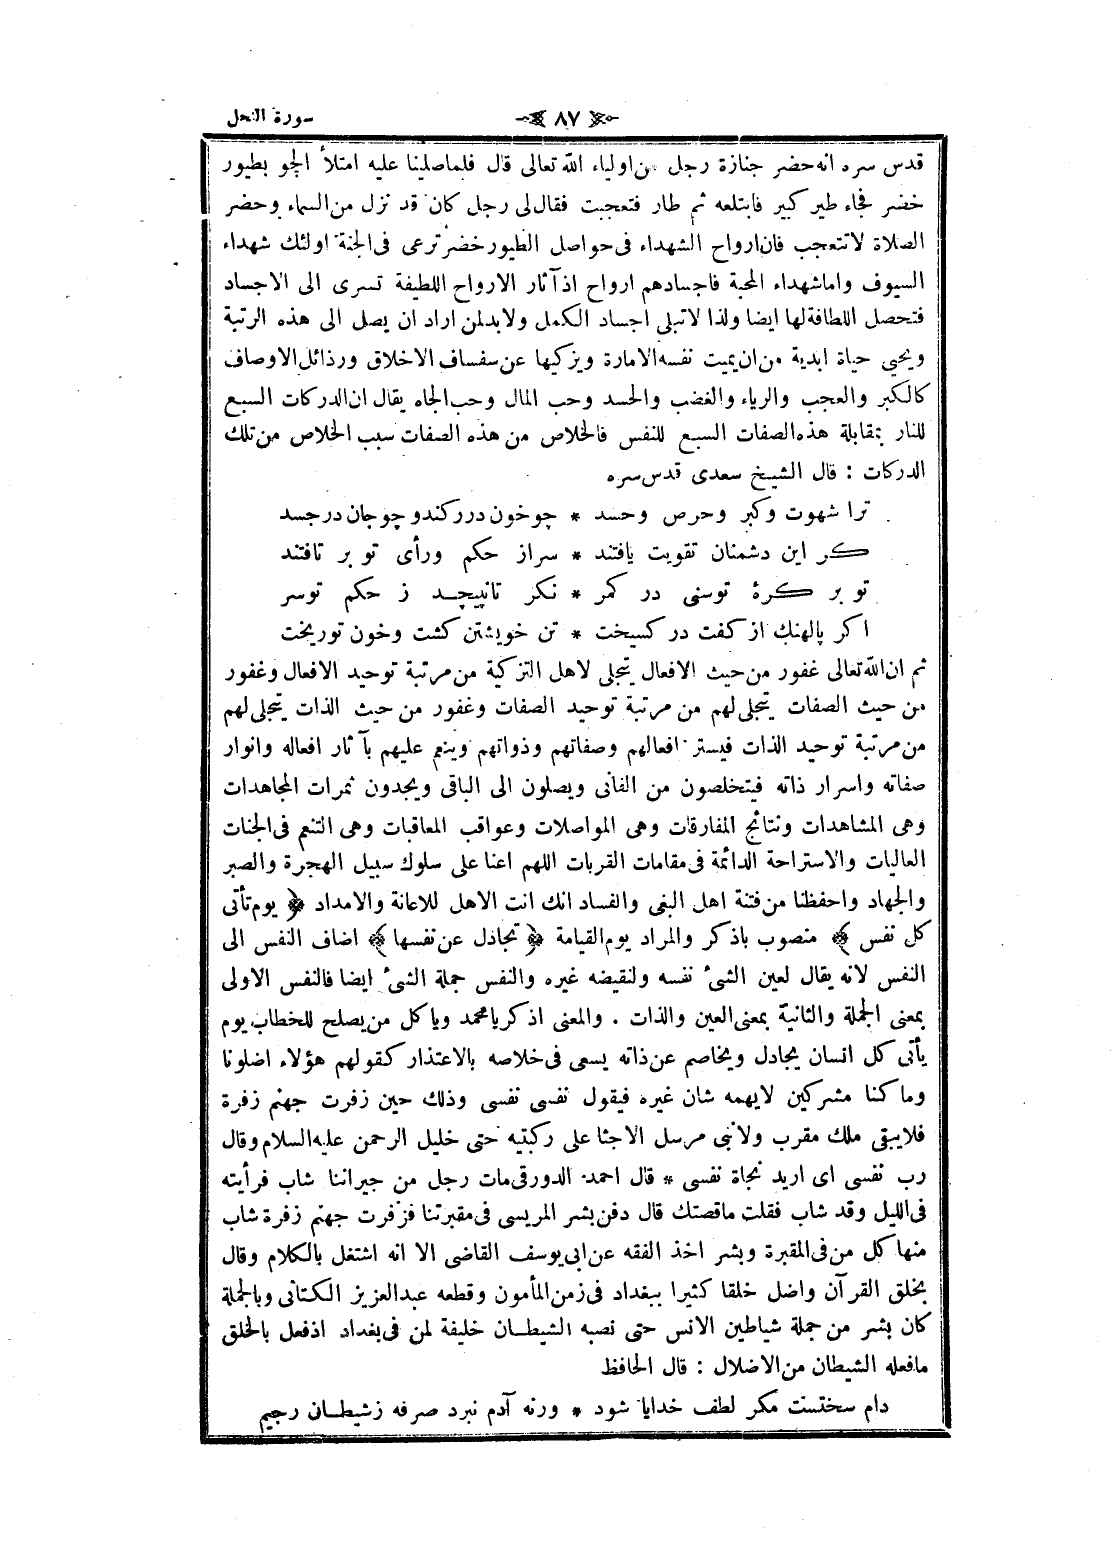 سورة النحل ٨٧
قدس سره انه حضر جنازة رجل من اولياء الله تعالى قال فلما صلينا عليه امتلأ الجو بطيور
خضر فجاء طير كبير فابتلعه ثم طار فتعجبت فقال لى رجل كان قد نزل من السماء وحضر
الصلاة لا تتعجب فان ارواح الشهداء فى حواصل الطيور خضر ترعى فى الجنة اولئك شهداء
السيوف واما شهداء المحبة فاجسادهم ارواح اذ آثار الارواح اللطيفة تسرى الى الاجساد
فتحصل اللطافة لها ايضا ولذا لا تبلى اجساد الكمل ولا بد لمن اراد ان يصل الى هذه الرتبة
ويحيى حياة ابدية من ان يميت نفسه الامارة ويزكيها عن سفساف الاخلاق ورذائل الاوصاف
كالكبر والعجب والرياء والغضب والحسد وحب المال وحب الجاه يقال ان الدركات السبع
للنار بمقابلة هذه الصفات السبع للنفس فالخلاص من هذه الصفات سبب الخلاص من تلك
الدركات : قال الشيخ سعدى قدس سره
ترا شهوت وكبر وحرص وحسد * چو خون در ركند و چو جان در جسد
كر اين دشمنان تقويت يافتند * سر از حكم ورأى تو بر تافتند
تو بر كرهٔ توسنى در كمر * نكر تا نپيچد ز حكم تو سر
اكر پالهنك از كفت در كسيخت * تن خويشتن كشت وخون تو ريخت
ثم ان الله تعالى غفور من حيث الافعال يتجلى لاهل التزكية من مرتبة توحيد الافعال وغفور
من حيث الصفات يتجلى لهم من مرتبة توحيد الصفات وغفور من حيث الذات يتجلى لهم
من مرتبة توحيد الذات فيستر افعالهم وصفاتهم وذواتهم وينعم عليهم بآ ثار افعاله وانوار
صفاته واسرار ذاته فيتخلصون من الفانى ويصلون الى الباقى ويجدون ثمرات المجاهدات
وهى المشاهدات ونتائج المفارقات وهى المواصلات وعواقب المعاقبات وهى التنعم فى الجنات
العاليات والاستراحة الدائمة فى مقامات القربات اللهم اعنا على سلوك سبيل الهجرة والصبر
والجهاد واحفظنا من فتنة اهل البغى والفساد انك انت الاهل للاعانة والامداد ﴿ يوم تأتى
كل نفس ﴾ منصوب باذكر والمراد يوم القيامة ﴿ تجادل عن نفسها ﴾ اضاف النفس الى
النفس لانه يقال لعين الشئ نفسه ولنقيضه غيره والنفس جملة الشئ ايضا فالنفس الاولى
بمعنى الجملة والثانية بمعنى العين والذات . والمعنى اذكر يا محمد ويا كل من يصلح للخطاب يوم
يأتى كل انسان يجادل ويخاصم عن ذاته يسعى فى خلاصه بالاعتذار كقولهم هؤلاء اضلونا
وما كنا مشركين لا يهمه شان غيره فيقول نفسى نفسى وذلك حين زفرت جهنم زفرة
فلا يبقى ملك مقرب ولا نبى مرسل الا جثا على ركبتيه حتى خليل الرحمن عليه السلام وقال
رب نفسى اى اريد نجاة نفسى * قال احمد الدورقى مات رجل من جيراننا شاب فرأيته
فى الليل وقد شاب فقلت ما قصتك قال دفن بشر المريسى فى مقبرتنا فزفرت جهنم زفرة شاب
منها كل من فى المقبرة وبشر اخذ الفقه عن ابى يوسف القاضى الا انه اشتغل بالكلام وقال
بخلق القرآن واضل خلقا كثيرا ببغداد فى زمن المأمون وقطعه عبد العزيز الكتانى وبالجملة
كان بشر من جملة شياطين الانس حتى نصبه الشيطان خليفة لمن فى بغداد اذ فعل بالخلق
ما فعله الشيطان من الاضلال : قال الحافظ
دام سختست مكر لطف خدايا شود * ورنه آدم نبرد صرفه ز شيطان رجيم